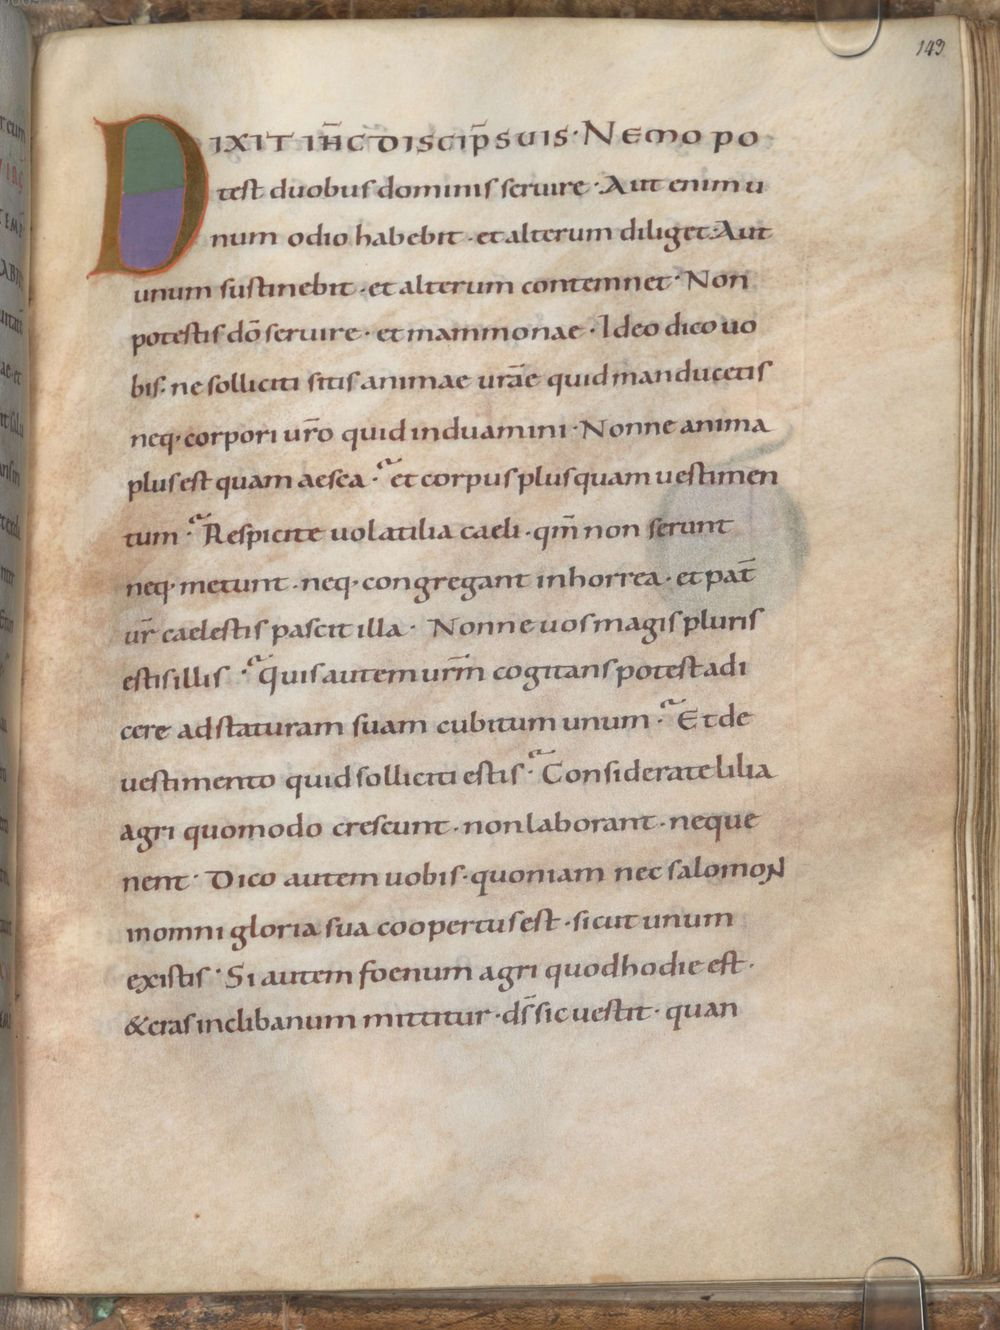 149
DIXIT IHC DISCIP SUIS · NEMO PO
test duobus dominis seruire · Aut enim u
num odio habebit · et alterum diliget · Aut
unum sustinebit · et alterum contemnet · Non
potestis dō seruire · et mammonae · Ideo dico uo
bis · ne solliciti sitis animae urāe quid manducetis
neq· corpori ur̄o quid induamini · Nonne anima
plus est quam aesca · et corpus plus quam uestimen
tum · Respicite uolatilia caeli · qm̄ non serunt
neq· metunt · neq· congregant in horrea · et pat̄
ur̄ caelestis pascit illa · Nonne uos magis pluris
estis illis · Quis autem urm̄ cogitans potest adi
cere ad staturam suam cubitum unum · Et de
uestimento quid solliciti estis · Considerate lilia
agri quomodo crescunt · non laborant · neque
nent · Dico autem uobis · quoniam nec salomoN
in omni gloria sua coopertus est · sicut unum
ex istis · Si autem foenum agri quod hodie est ·
& cras in clibanum mittitur · ds̄ sic uestit · quan